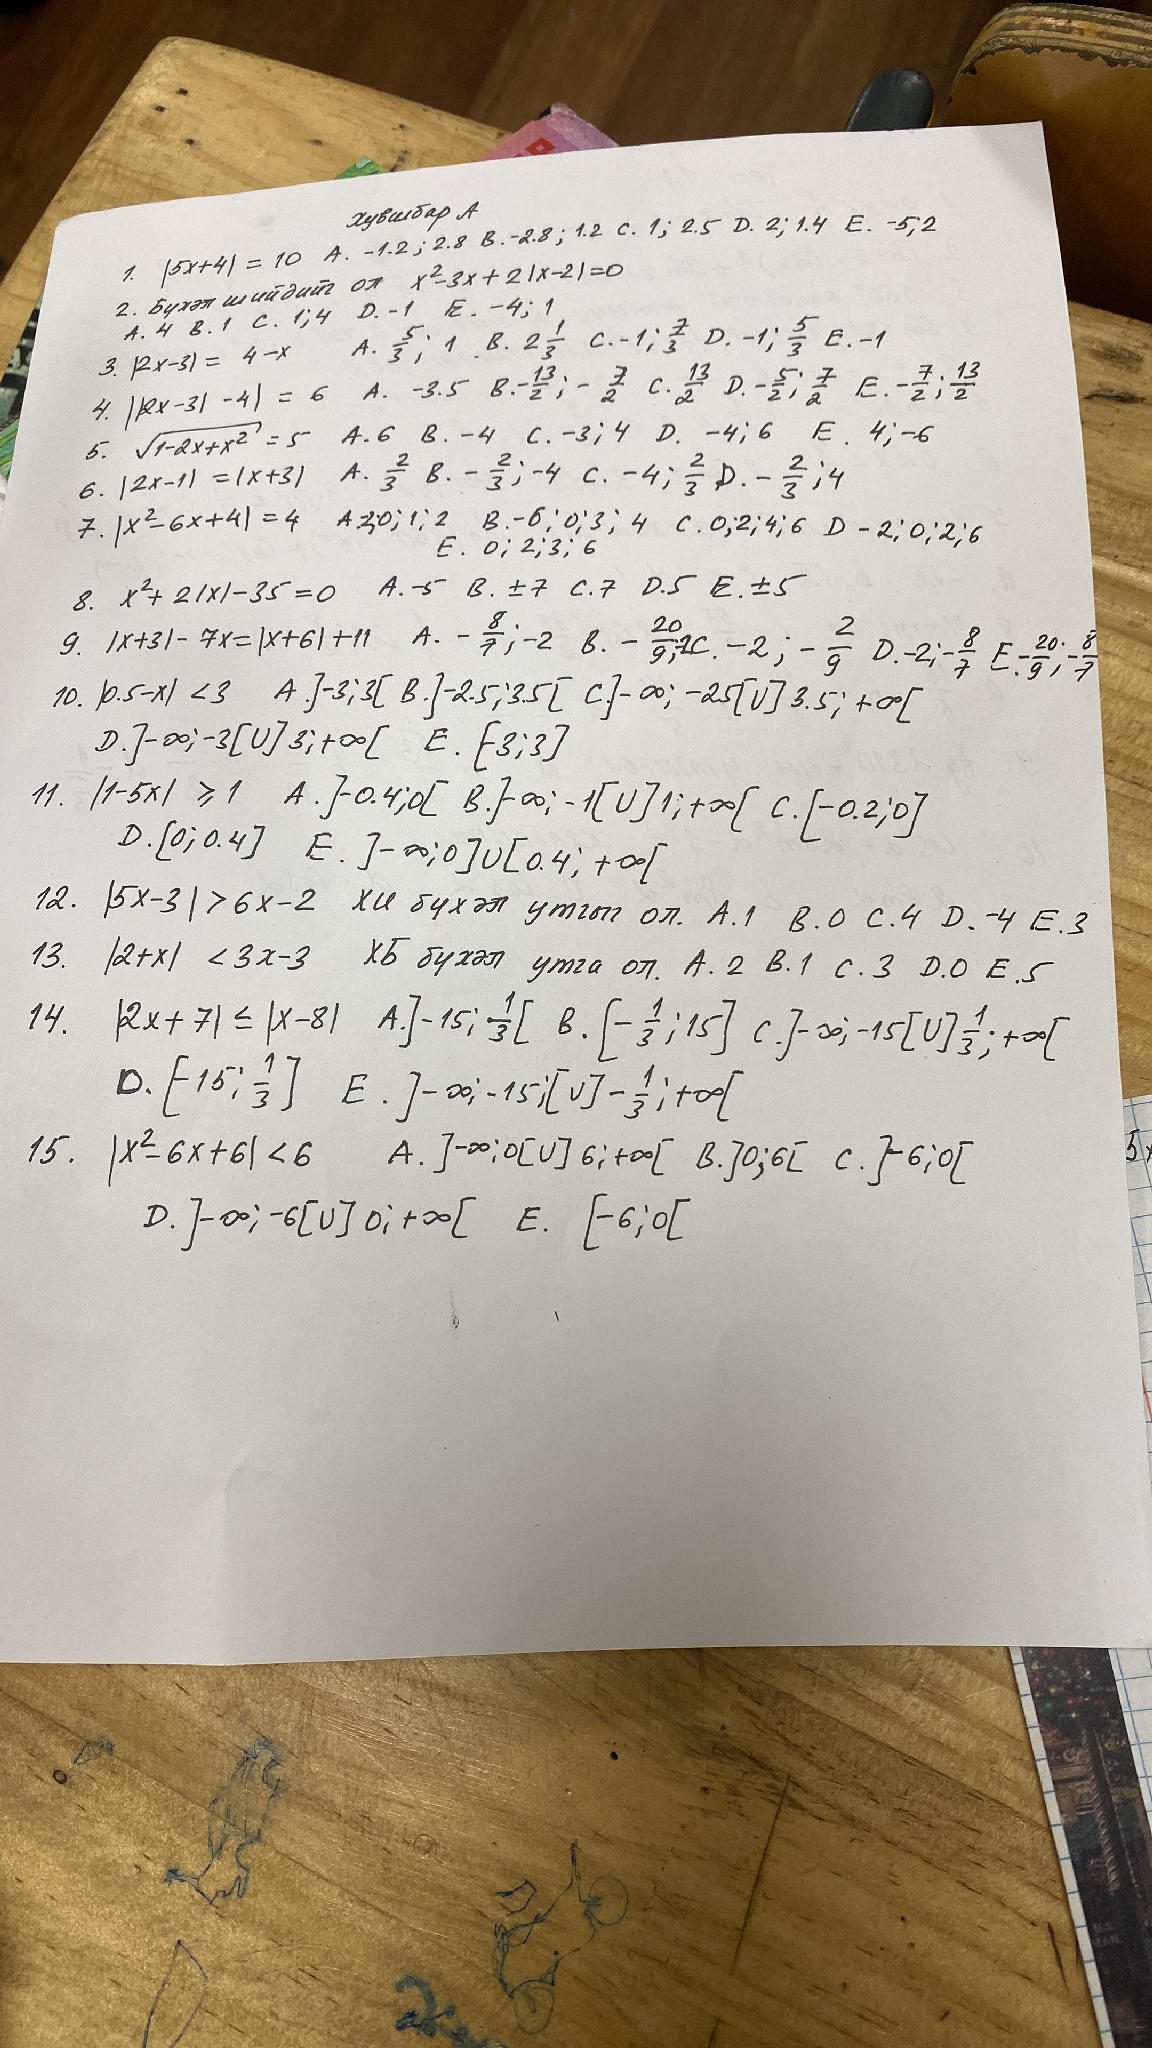 Хувилбар А
1. |5x+4| = 10 A. -1.2; 2.8 B. -2.8; 1.2 C. 1; 2.5 D. 2; 1.4 E. -5; 2
2. Бүхэл шийдийг ол x²-3x+2|x-2|=0
A. 4 B. 1 C. 1; 4 D. -1 E. -4; 1
3. |2x-3| = 4-x A. 5/3; 1 B. 2 1/3 C. -1; 7/3 D. -1; 5/3 E. -1
4. ||2x-3| -4| = 6 A. -3.5 B. -13/2; -7/2 C. 13/2 D. -5/2; 7/2 E. -7/2; 13/2
5. √(1-2x+x²) = 5 A. 6 B. -4 C. -3; 4 D. -4; 6 E. 4; -6
6. |2x-1| = |x+3| A. 2/3 B. -2/3; -4 C. -4; 2/3 D. -2/3; 4
7. |x²-6x+4| = 4 A. 0; 1; 2 B. -6; 0; 3; 4 C. 0; 2; 4; 6 D -2; 0; 2; 6
E. 0; 2; 3; 6
8. x²+2|x|-35=0 A. -5 B. ±7 C. 7 D. 5 E. ±5
9. |x+3| - 7x = |x+6| + 11 A. -8/7; -2 B. -20/9; C. -2; -2/9 D. -2; -8/7 E. -20/9; -8/7
10. |0.5-x| < 3 A. ]-3; 3[ B. ]-2.5; 3.5[ C. ]-∞; -2.5[U]3.5; +∞[
D. ]-∞; -3[U]3; +∞[ E. [-3; 3]
11. |1-5x| ⩾ 1 A. ]-0.4; 0[ B. ]-∞; -1[U]1; +∞[ C. [-0.2; 0]
D. [0; 0.4] E. ]-∞; 0]U[0.4; +∞[
12. |5x-3| > 6x-2 ХИ бүхэл утгыг ол. A. 1 B. 0 C. 4 D. -4 E. 3
13. |2+x| < 3x-3 ХБ бүхэл утга ол. A. 2 B. 1 C. 3 D. 0 E. 5
14. |2x+7| ≤ |x-8| A. ]-15; 1/3[ B. [-1/3; 15] C. ]-∞; -15[U]1/3; +∞[
D. [-15; 1/3] E. ]-∞; -15;[U]-1/3; +∞[
15. |x²-6x+6| < 6 A. ]-∞; 0[U]6; +∞[ B. ]0; 6[ C. ]-6; 0[
D. ]-∞; -6[U]0; +∞[ E. [-6; 0[